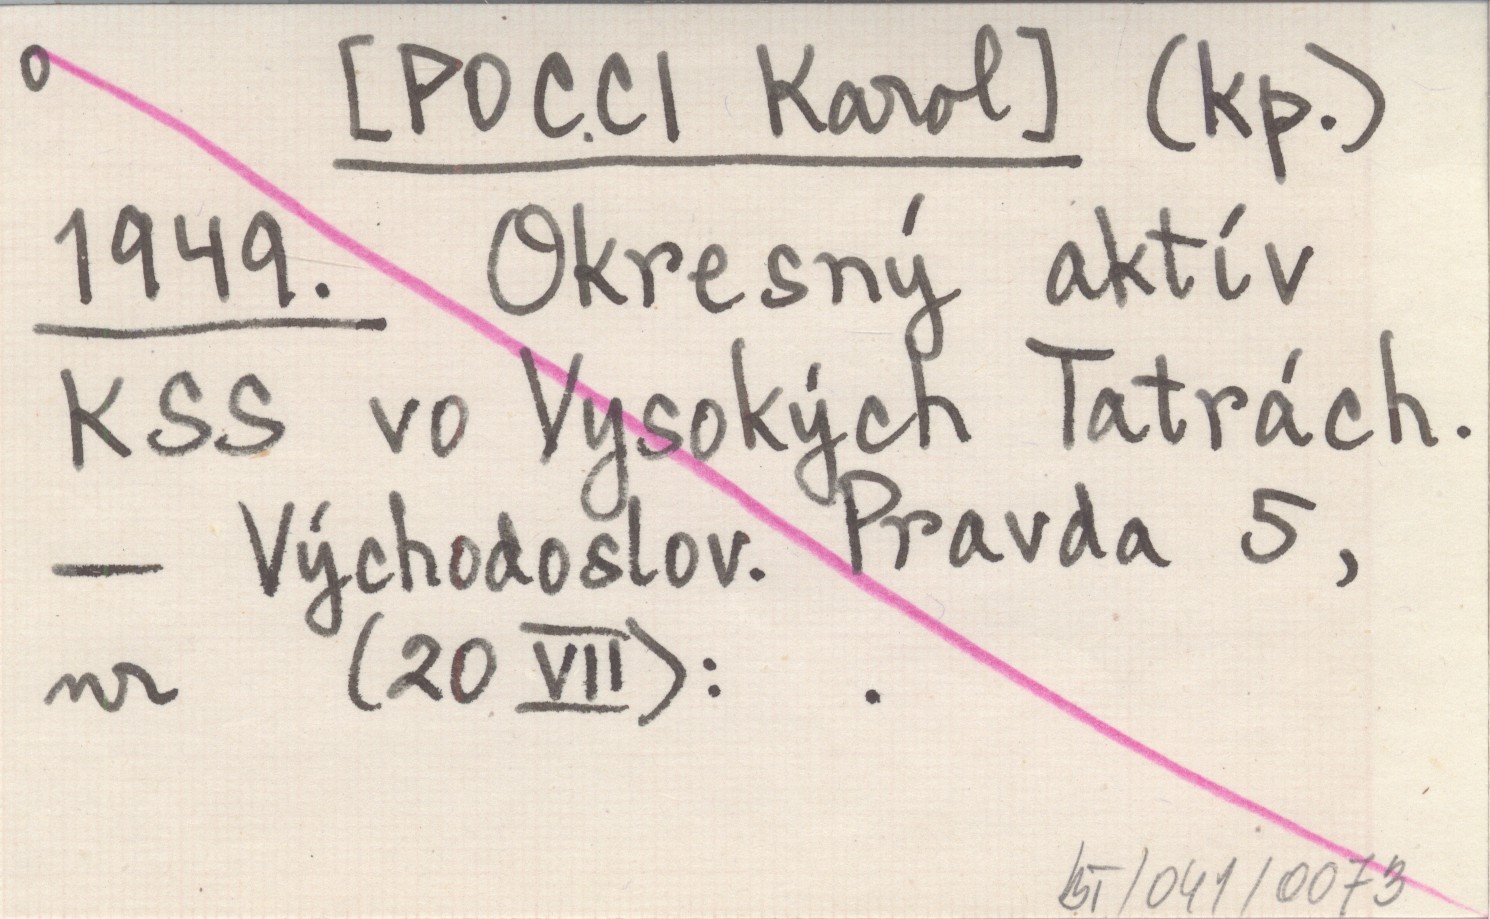 o [POCCI Karol] (kp.)
1949. Okresný aktív
KSS vo Vysokých Tatrách.
— Východoslov. Pravda 5,
nr (20 VII): .
BT/041/0073